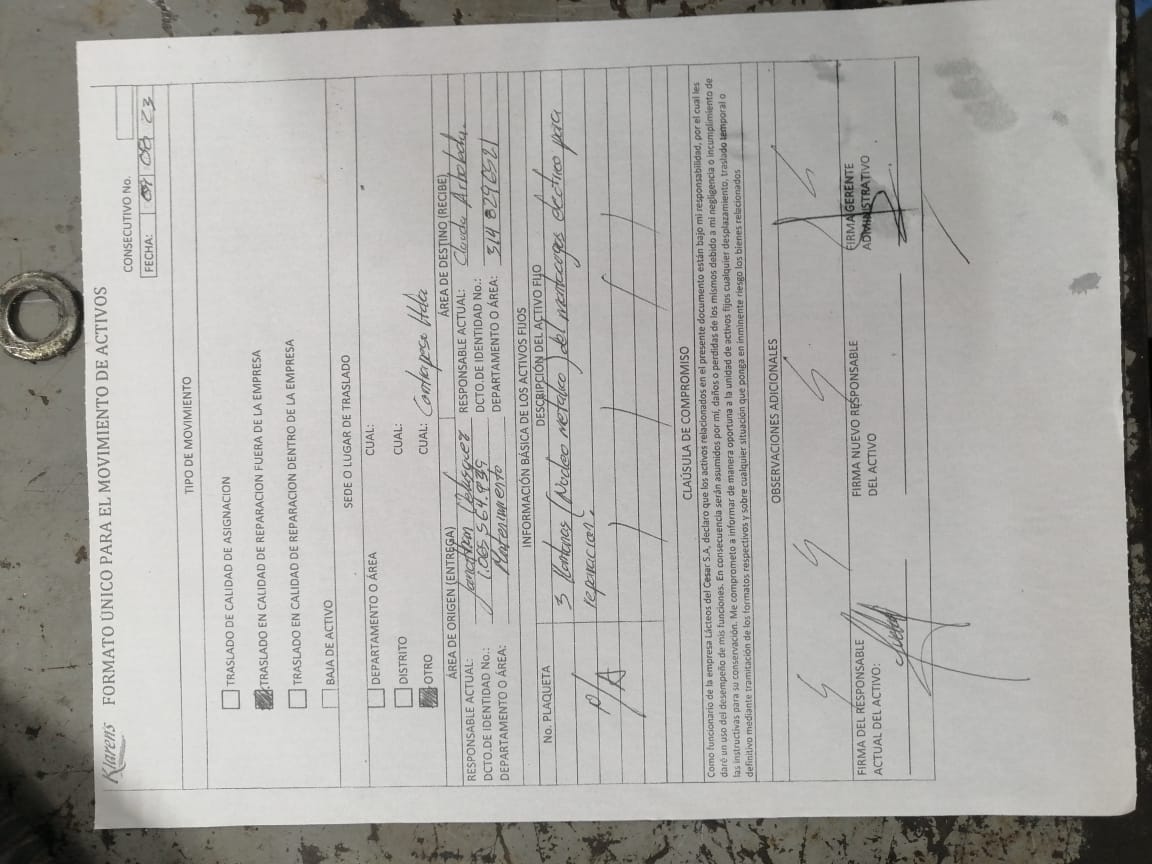 Klarens FORMATO UNICO PARA EL MOVIMIENTO DE ACTIVOS
CONSECUTIVO No.
FECHA: 08 23
TIPO DE MOVIMIENTO
TRASLADO DE CALIDAD DE ASIGNACION
TRASLADO EN CALIDAD DE REPARACION FUERA DE LA EMPRESA
TRASLADO EN CALIDAD DE REPARACION DENTRO DE LA EMPRESA
BAJA DE ACTIVO
SEDE O LUGAR DE TRASLADO
DEPARTAMENTO O ÁREA CUAL:
DISTRITO CUAL:
OTRO CUAL: Contrapeso ltda
ÁREA DE ORIGEN (ENTREGA) ÁREA DE DESTINO (RECIBE)
RESPONSABLE ACTUAL: Jonathan RESPONSABLE ACTUAL: Claudia Arboleda.
DCTO.DE IDENTIDAD No.: DCTO.DE IDENTIDAD No.:
DEPARTAMENTO O ÁREA: Mantenimiento DEPARTAMENTO O ÁREA: 314
INFORMACIÓN BÁSICA DE LOS ACTIVOS FIJOS
No. PLAQUETA DESCRIPCIÓN DEL ACTIVO FIJO
3 (Nucleo metalico) del montacargas electrico para
N/A reparacion.
CLAÚSULA DE COMPROMISO
Como funcionario de la empresa Lácteos del Cesar S.A, declaro que los activos relacionados en el presente documento están bajo mi responsabilidad, por el cual les
daré un uso del desempeño de mis funciones. En consecuencia serán asumidos por mí, daños o perdidas de los mismos debido a mi negligencia o incumplimiento de
las instructivas para su conservación. Me comprometo a informar de manera oportuna a la unidad de activos fijos cualquier desplazamiento, traslado temporal o
definitivo mediante tramitación de los formatos respectivos y sobre cualquier situación que ponga en inminente riesgo los bienes relacionados
OBSERVACIONES ADICIONALES
FIRMA DEL RESPONSABLE FIRMA NUEVO RESPONSABLE FIRMA GERENTE
ACTUAL DEL ACTIVO: DEL ACTIVO ADMINISTRATIVO